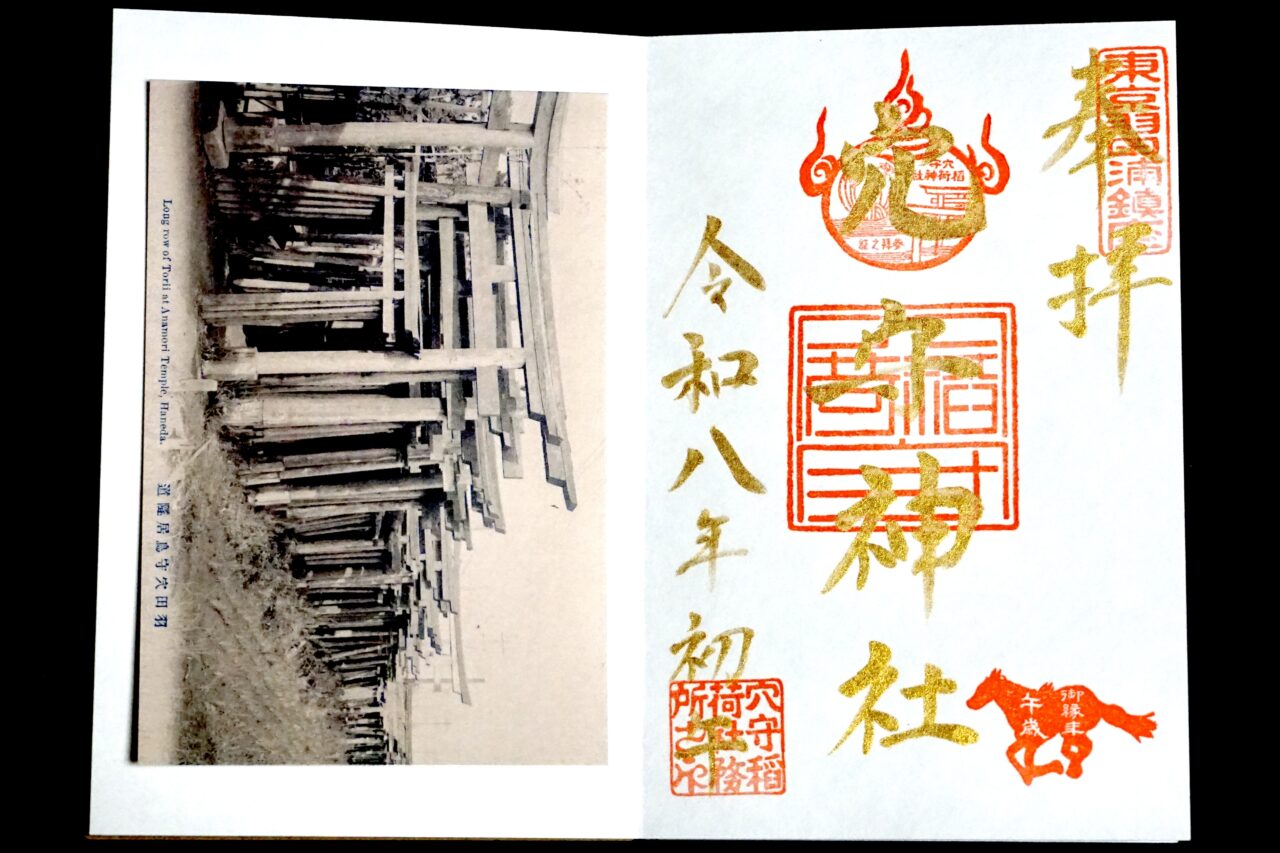 Long row of Torii at Anamori Temple, Haneda.
羽田穴守鳥居隧道
奉拝
東京羽田浦鎮
穴守神社
稲荷神社
参拝之証
御縁年
午歳
令和八年初午
穴守稲
荷社務
所之印